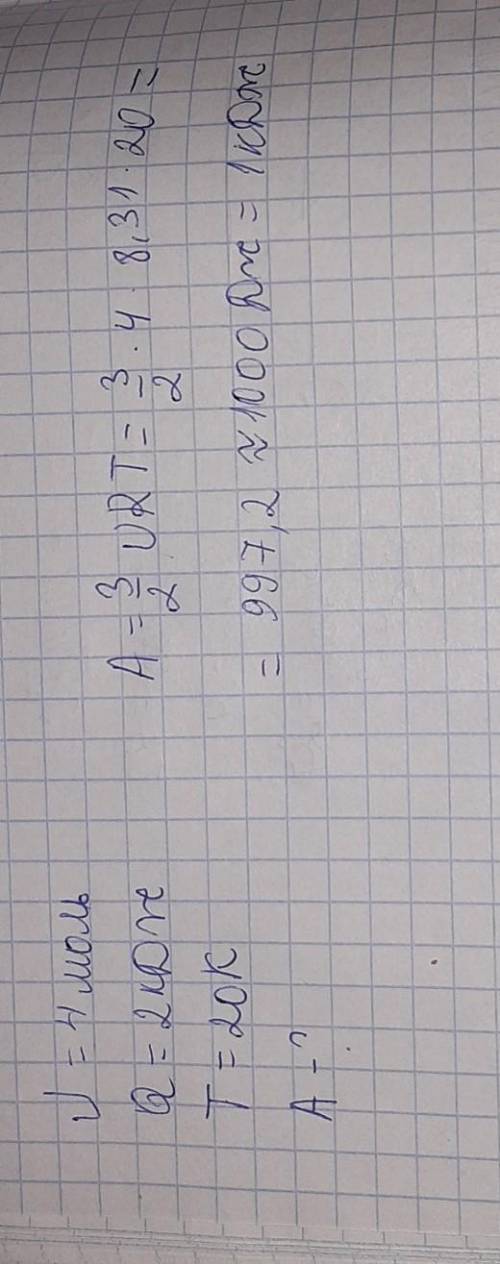 υ = 4 моль
Q = 2 кДж
T = 20K
A - ?
A = 3/2 υRT = 3/2 · 4 · 8,31 · 20 =
= 997,2 ≈ 1000 Дж = 1 кДж